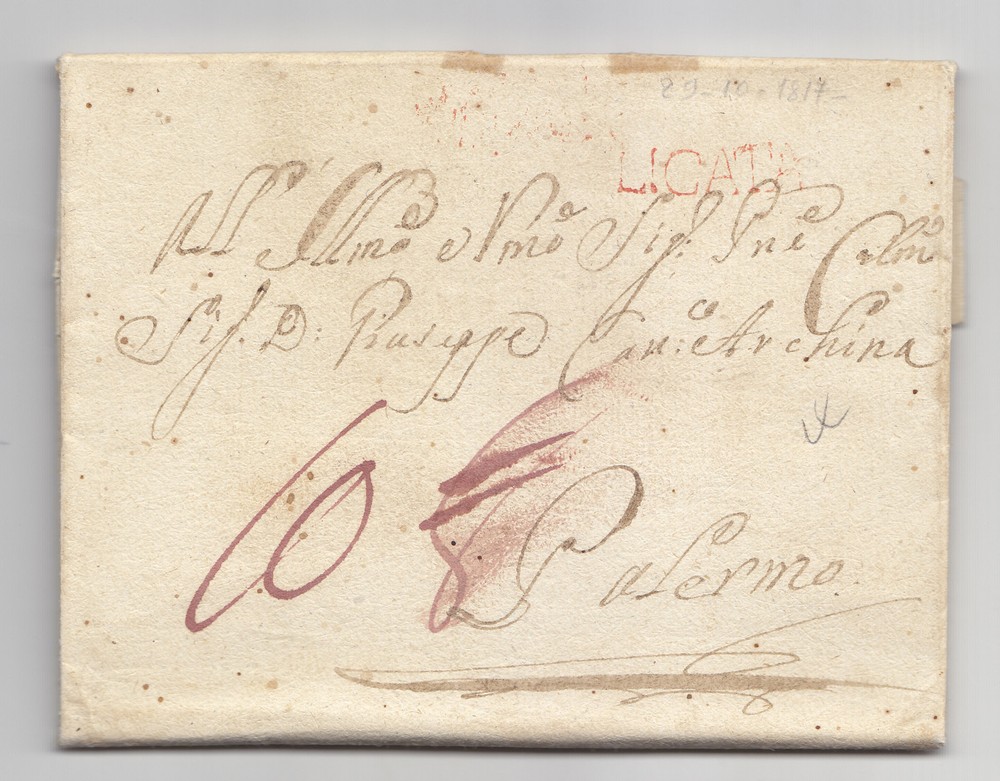 29-10-1817-
LICATA
All Illmo e Nmo Sig: Pne Colmo
Sig. D: Giuseppe Can: Archina
6
Palermo